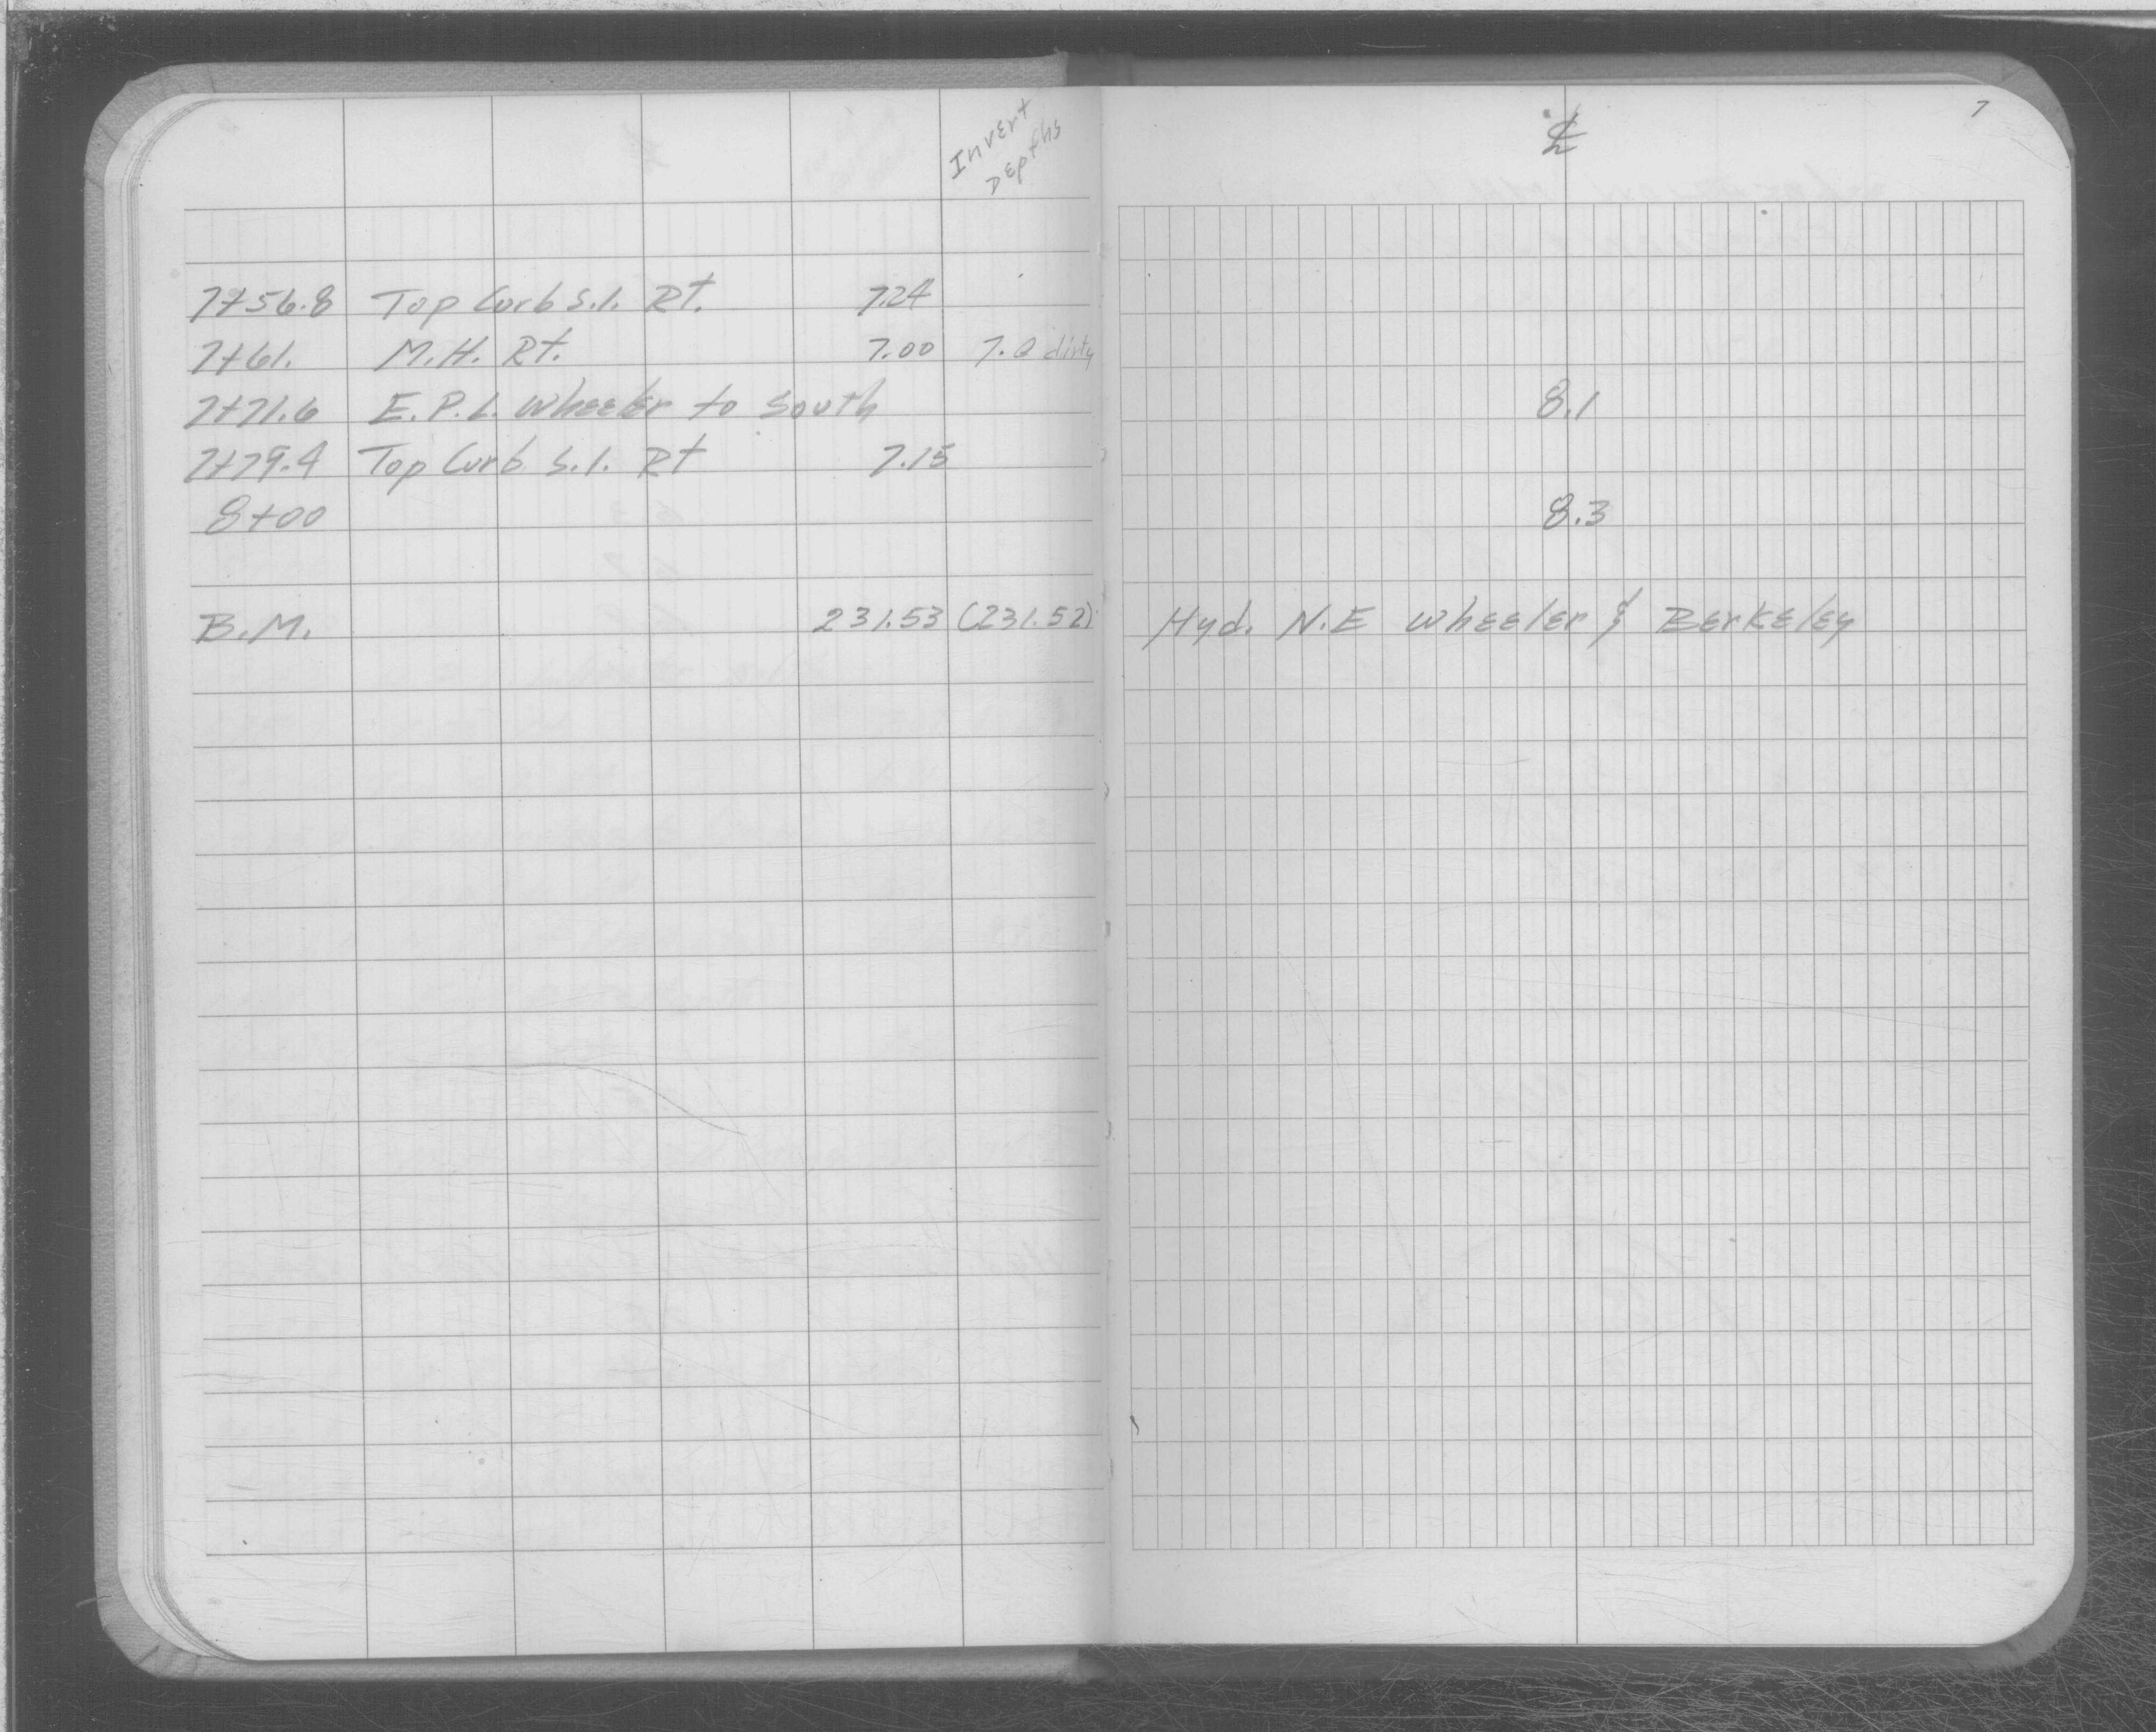 Invert
Depths
℄
7
7+56.8 Top Curb S.I. Rt. 7.24
7+61. M.H. Rt. 7.00 7.0 dirty
7+71.6 E.P.L. Wheeler to South 8.1
7+79.4 Top Curb S.I. Rt 7.15
8+00 8.3
B.M. 231.53 (231.52) Hyd. N.E Wheeler & Berkeley